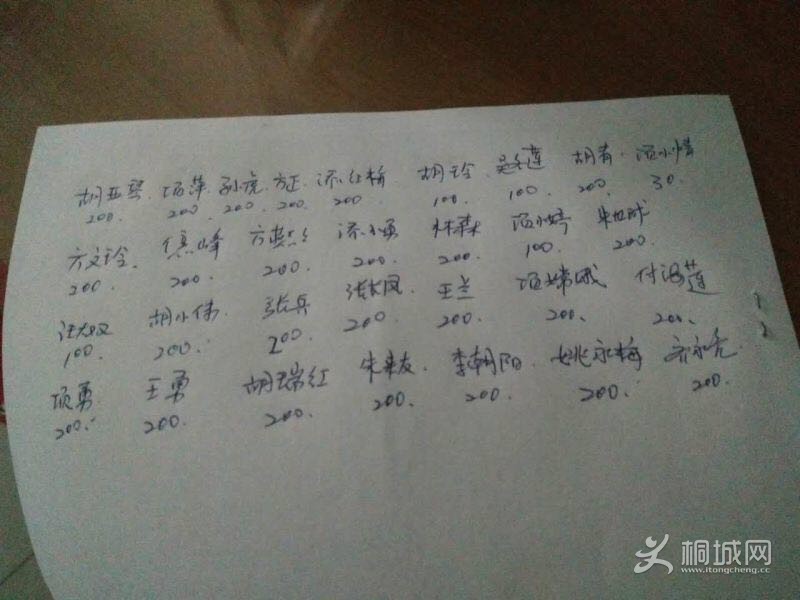 胡亚琴 项萍 孙虎 方正 添红梅 胡玲 吴冬莲 胡青 项小情
200. 200. 200. 200. 200 100. 100. 200. 30.
方文玲 焦峰 方 添小勇 林森 项小婷 朱世成
200. 200. 200. 200. 200. 100. 200.
汪 胡小伟 张兵 张大凤 王兰 项嫦娥 付 莲
100. 200. 200. 200 200. 200. 200.
项勇 王勇 胡瑞红 朱来友 李朝阳 姚永梅 齐永亮
200. 200. 200. 200. 200. 200. 200.
桐城网
www.itongcheng.cc